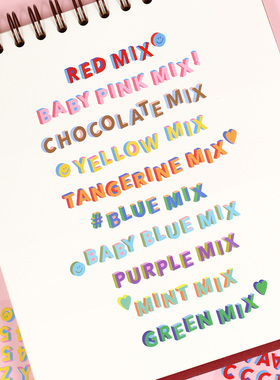 RED MIX
BABY PINK MIX!
CHOCOLATE MIX
YELLOW MIX
TANGERINE MIX
#BLUE MIX
BABY BLUE MIX
PURPLE MIX
MINT MIX
GREEN MIX